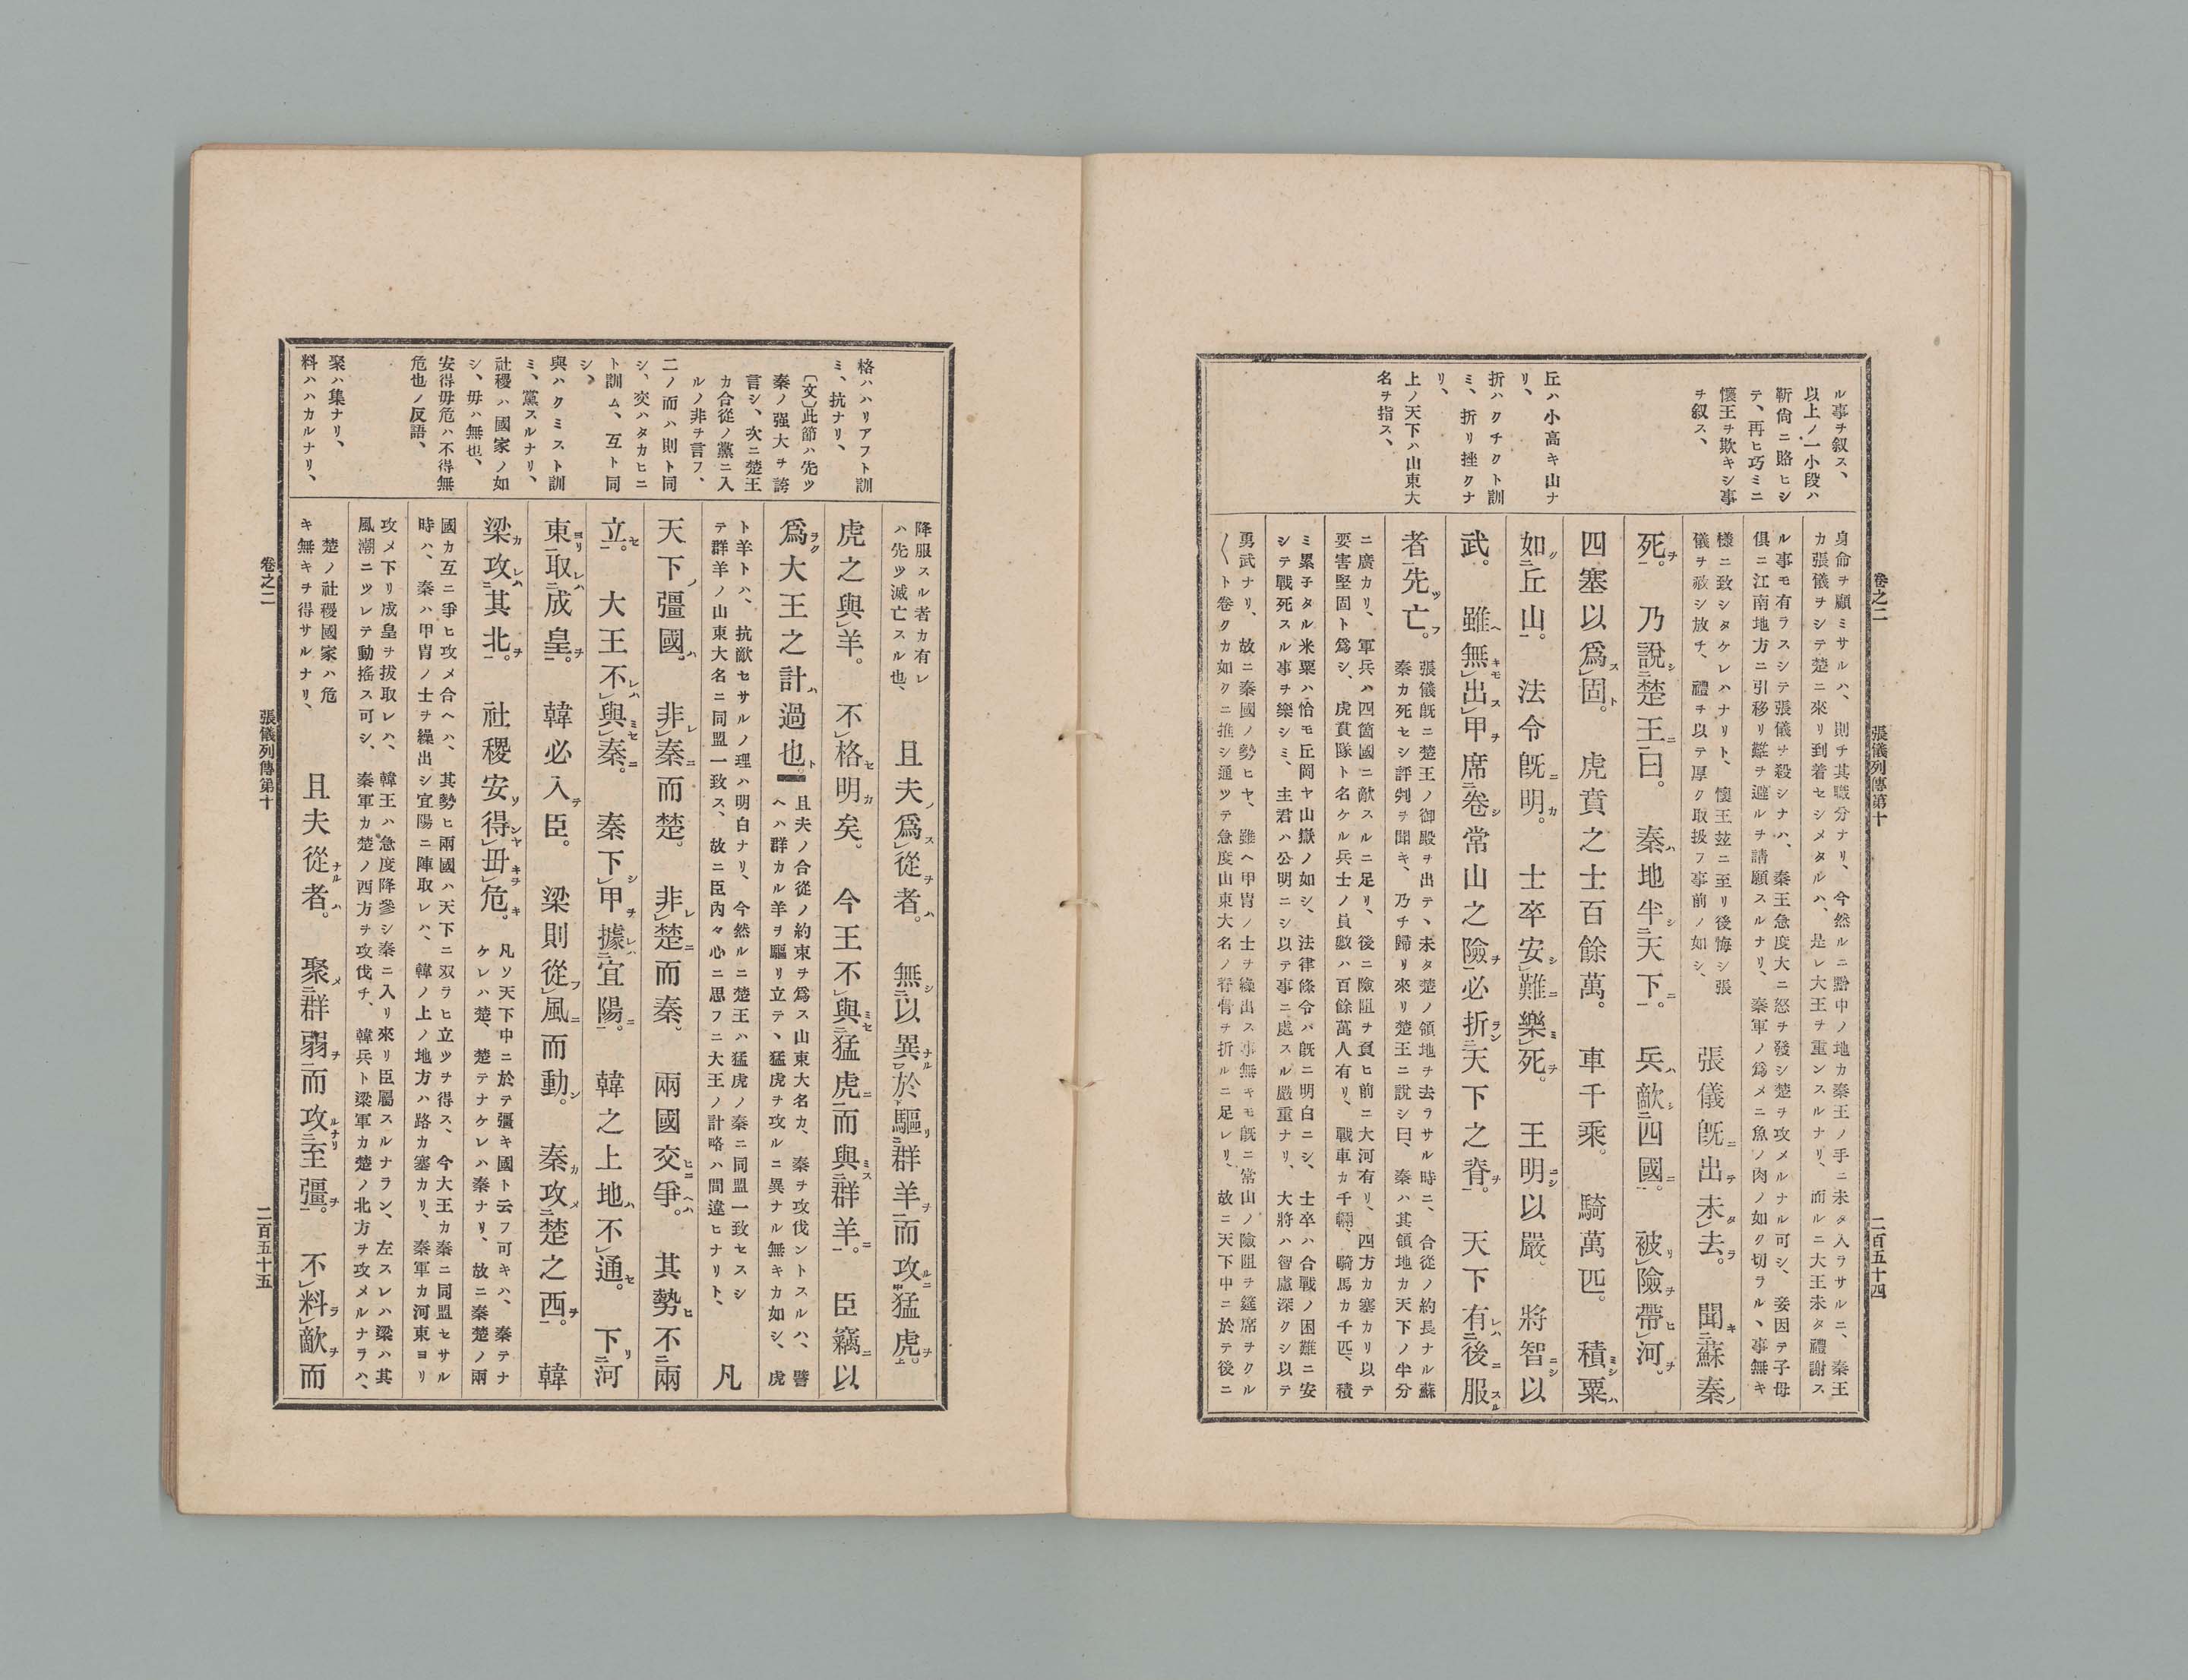 卷之二　張儀列傳第十　二百五十四
ル事ヲ叙ス、
以上ノ一小段ハ
靳尙ニ賂ヒシ
テ、再ヒ巧ミニ
懷王ヲ欺キシ事
ヲ叙ス、
丘ハ小高キ山ナ
リ、
折ハクチクト訓
ミ、折リ挫クナ
リ、
上ノ天下ハ山東大
名ヲ指ス、
身命ヲ顧ミサルハ、則チ其職分ナリ、今然ルニ黔中ノ地カ秦王ノ手ニ未タ入ラサルニ、秦王
カ張儀ヲシテ楚ニ來リ到着セシメタルハ、是レ大王ヲ重ンスルナリ、而ルニ大王未タ禮謝ス
ル事モ有ラスシテ張儀ヲ殺シナハ、秦王急度大ニ怒ヲ發シ楚ヲ攻メルナル可シ、妾因テ子母
俱ニ江南地方ニ引移リ難ヲ避ルヲ請願スルナリ、秦軍ノ爲メニ魚ノ肉ノ如ク切ラルヽ事無キ
樣ニ致シタケレハナリト、懷王玆ニ至リ後悔シ張
儀ヲ赦シ放チ、禮ヲ以テ厚ク取扱フ事前ノ如シ、
張儀旣ニ出テ未タ去ラ。聞キ蘇秦ノ
死ヲ。乃說シ楚王ニ曰。秦ハ地半シ天下ニ。兵ハ敵シ四國ニ。被リ險ヲ帶ヒ河ヲ。
四塞以爲ス固ト。虎賁之士百餘萬。車千乘。騎萬匹。積ミシ粟ハ
如ク丘山。法令旣ニ明カ。士卒安シ難ニ樂ミ死ヲ。王明ニシ以嚴。將智ニシ以
武。雖ヘ無キモ出ス甲ヲ席卷シ常山之險ヲ必折ラン天下之脊ヲ。天下有レハ後ニ服スル
者先ツ亡フ。
張儀旣ニ楚王ノ御殿ヲ出テヽ未タ楚ノ領地ヲ去ラサル時ニ、合從ノ約長ナル蘇
秦カ死セシ評判ヲ聞キ、乃チ歸リ來リ楚王ニ說シ曰、秦ハ其領地カ天下ノ半分
ニ廣カリ、軍兵ハ四箇國ニ敵スルニ足リ、後ニ險阻ヲ負ヒ前ニ大河有リ、四方カ塞カリ以テ
要害堅固ト爲シ、虎賁隊ト名ケル兵士ノ員數ハ百餘萬人有リ、戰車カ千輛、騎馬カ千匹、積
ミ累子タル米粟ハ恰モ丘岡ヤ山嶽ノ如シ、法律條令ハ旣ニ明白ニシ、士卒ハ合戰ノ困難ニ安
シテ戰死スル事ヲ樂シミ、主君ハ公明ニシ以テ事ニ處スル嚴重ナリ、大將ハ智慮深クシ以テ
勇武ナリ、故ニ秦國ノ勢ヒヤ、雖ヘ甲胄ノ士ヲ繰出ス事無キモ旣ニ常山ノ險阻ヲ筵席ヲクル
〱ト卷クカ如クニ推シ通ツテ急度山東大名ノ脊骨ヲ折ルニ足レリ、故ニ天下中ニ於テ後ニ
格ハハリアフト訓
ミ、抗ナリ、
〔文〕此節ハ先ツ
秦ノ强大ヲ誇
言シ、次ニ楚王
カ合從ノ黨ニ入
ルノ非ヲ言フ、
二ノ而ハ則ト同
シ、交ハタカヒニ
ト訓ム、互ト同
シ、
與ハクミスト訓
ミ、黨スルナリ、
社稷ハ國家ノ如
シ、毋ハ無也、
安得毋危ハ不得無
危也ノ反語、
聚ハ集ナリ、
料ハハカルナリ、
降服スル者カ有レ
ハ先ツ滅亡スル也、
且夫ノ爲ス從ヲ者ハ。無シ以異ナル於驅リ群羊ヲ而攻ルニ猛虎ヲ。
虎之與羊。不格セ明カ矣。今王不與ミセ猛虎ニ而與ミス群羊ニ。臣竊ニ以
爲ラク大王之計ハ過也ト。
且夫ノ合從ノ約束ヲ爲ス山東大名カ、秦ヲ攻伐ントスルハ、譬
ヘハ群カル羊ヲ驅リ立テヽ猛虎ヲ攻ルニ異ナル無キカ如シ、虎
ト羊トハ、抗敵セサルノ理ハ明白ナリ、今然ルニ楚王ハ猛虎ノ秦ニ同盟一致セスシ
テ群羊ノ山東大名ニ同盟一致ス、故ニ臣內々心ニ思フニ大王ノ計略ハ間違ヒナリト、
凡
天下ノ彊國ハ。非レ秦ニ而楚。非レ楚ニ而秦。兩國交ヒニ爭ヘハ。其勢ヒ不兩
立セ。大王不レハ與ミセ秦ニ。秦下シ甲ヲ據レハ宜陽ニ。韓之上地ハ不通セ。下リ河
東ヨリ取レハ成皇ヲ。韓必入テ臣。梁則從フ風ニ而動ン。秦カ攻メ楚之西ヲ。韓
梁カ攻レハ其北ヲ。社稷安ソ得ンヤ毋キヲ危キ。
凡ソ天下中ニ於テ彊キ國ト云フ可キハ、秦テナ
ケレハ楚、楚テナケレハ秦ナリ、故ニ秦楚ノ兩
國カ互ニ爭ヒ攻メ合ヘハ、其勢ヒ兩國ハ天下ニ双ラヒ立ツヲ得ス、今大王カ秦ニ同盟セサル
時ハ、秦ハ甲胄ノ士ヲ繰出シ宜陽ニ陣取レハ、韓ノ上ノ地方ハ路カ塞カリ、秦軍カ河東ヨリ
攻メ下リ成皇ヲ拔取レハ、韓王ハ急度降參シ秦ニ入リ來リ臣屬スルナラン、左スレハ梁ハ其
風潮ニツレテ動搖ス可シ、秦軍カ楚ノ西方ヲ攻伐チ、韓兵ト梁軍カ楚ノ北方ヲ攻メルナラハ、
楚ノ社稷國家ハ危
キ無キヲ得サルナリ、
且夫從ナル者ハ。聚メ群弱ヲ而攻ルナリ至彊ヲ。不料ラ敵ヲ而
卷之二　張儀列傳第十　二百五十五